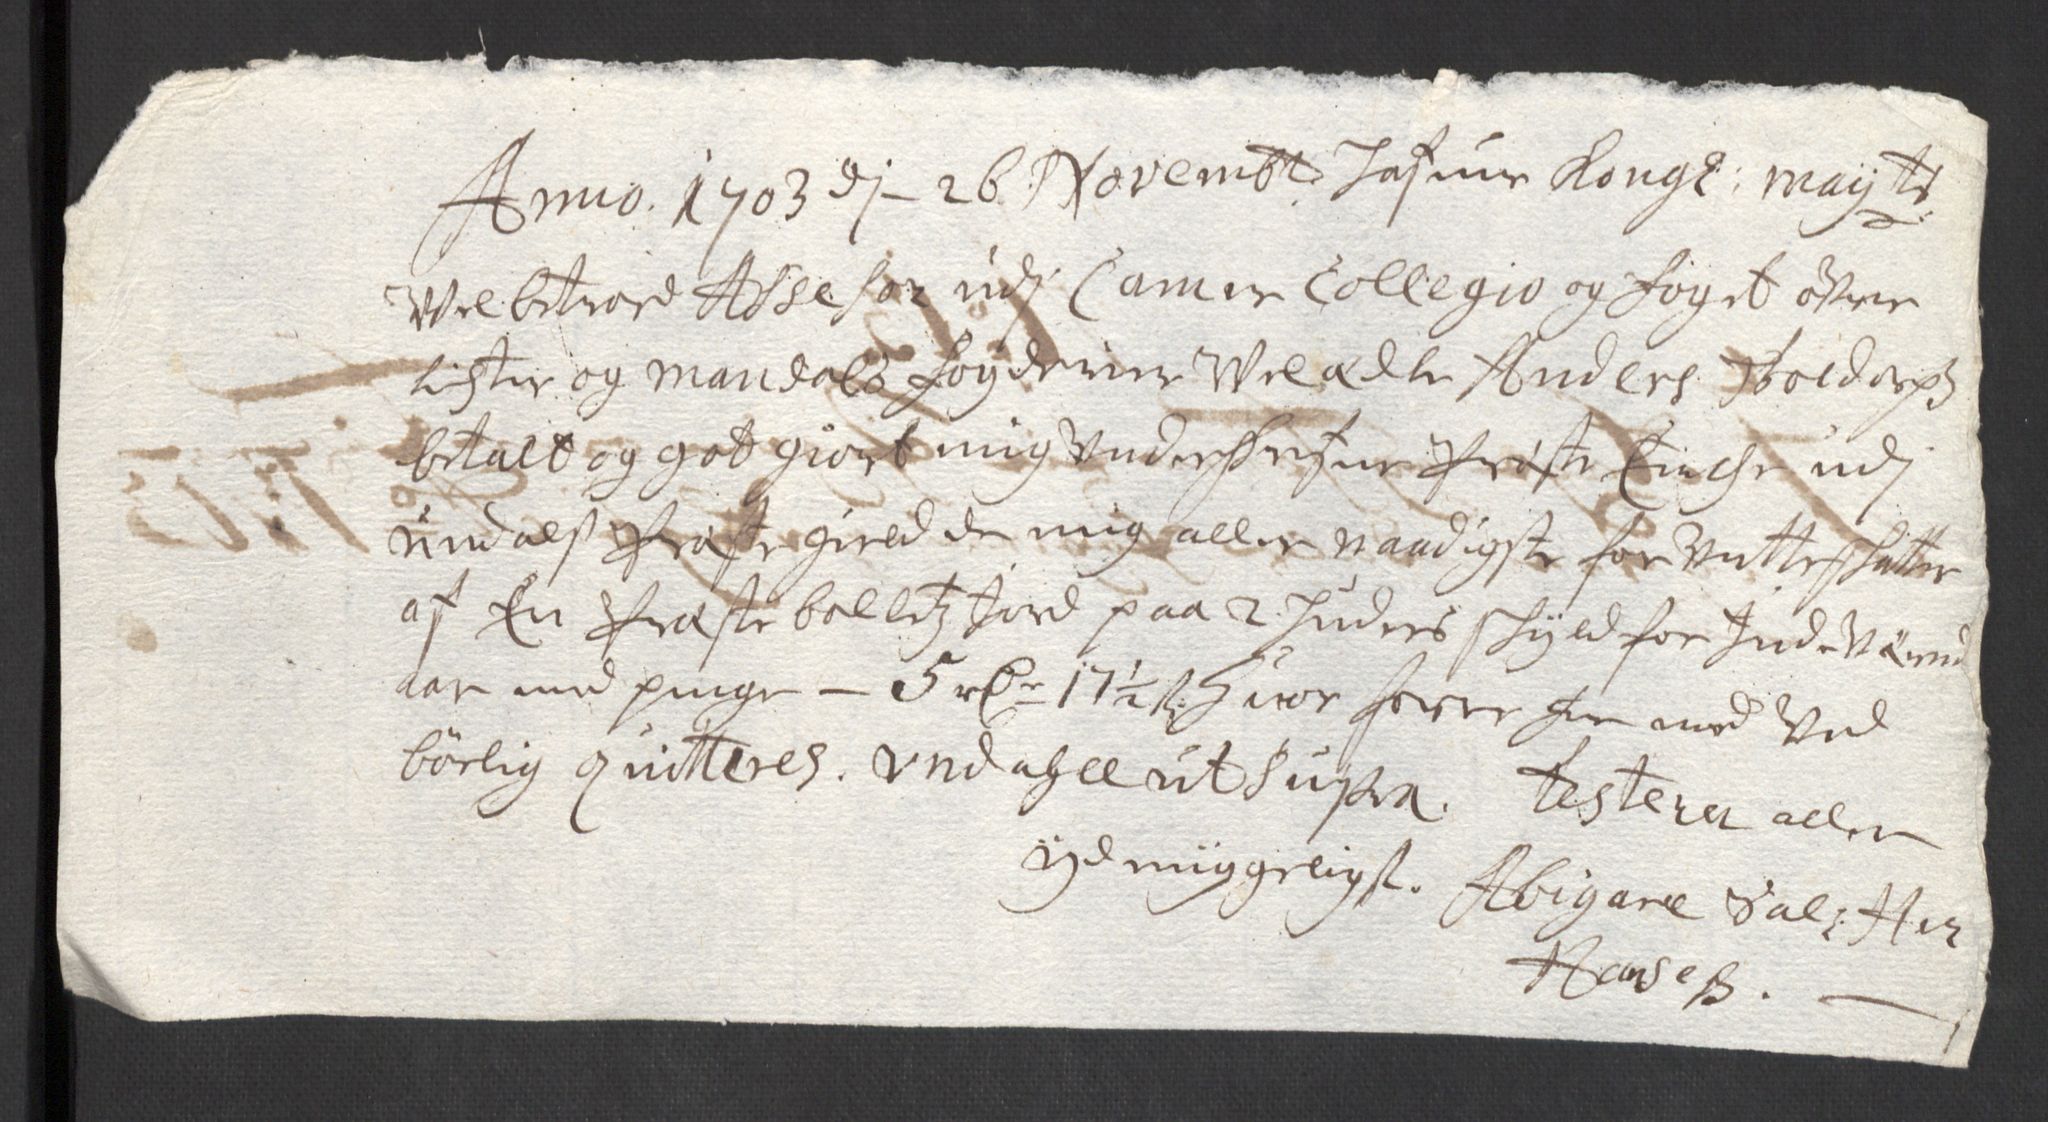 Anno. 1703 dj – 26 Novembr. Hafuer Kongl: mayts:
Welbetroed Assesor udj Camer Collegio og foget ofuer
Lister og Mandals fogderier Welædle Anders Toldorph
betalt og got giort mig Underskrefne Præste Encke udj
Undals Præste gield de mig aller naadigste for Unte skatter
af En Præste bolletz Jord paa 2 huders skyld for Inde værend
aar med penge – 5 rdr 17½ s: Huor forre her med Ved
börlig quitteres. Undahll ut Supra. Testerer aller
ydmyggeligst. Abigael Sal: Her
Hanseß.